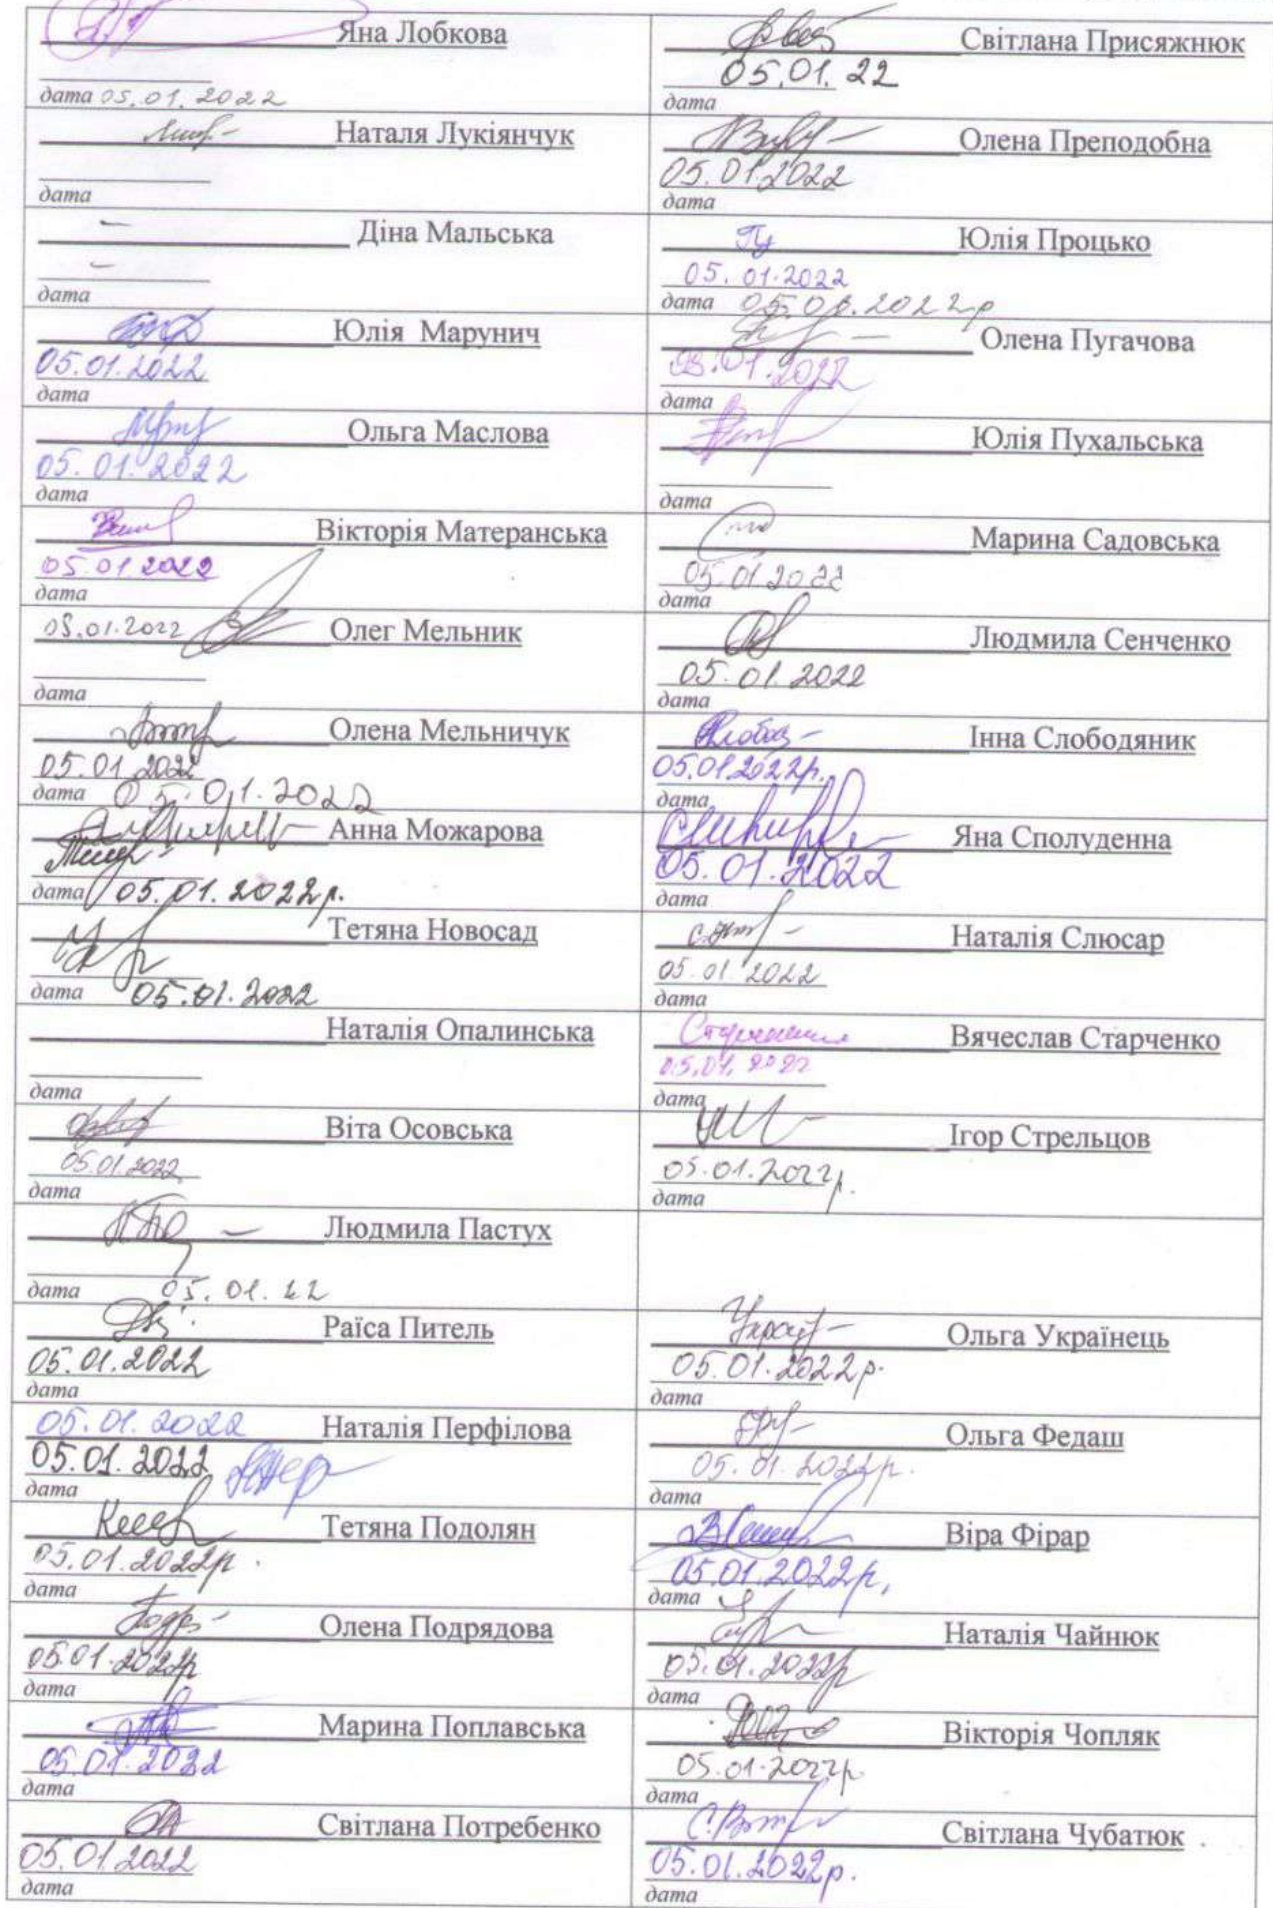 Яна Лобкова
дата 05.01.2022
Наталя Лукіянчук
дата
Діна Мальська
дата
Юлія Марунич
05.01.2022
дата
Ольга Маслова
05.01.2022
дата
Вікторія Матеранська
05.01.2022
дата
05.01.2022 Олег Мельник
дата
Олена Мельничук
05.01.2022
дата 05.01.2022
Анна Можарова
дата 05.01.2022р.
Тетяна Новосад
дата 05.01.2022
Наталія Опалинська
дата
Віта Осовська
05.01.2022
дата
Людмила Пастух
дата 05.01.22
Раїса Питель
05.01.2022
дата
05.01.2022 Наталія Перфілова
05.01.2022
дата
Тетяна Подолян
05.01.2022р.
дата
Олена Подрядова
05.01.2022р
дата
Марина Поплавська
05.01.2022
дата
Світлана Потребенко
05.01.2022
дата
Світлана Присяжнюк
05.01.22
дата
Олена Преподобна
05.01.2022
дата
Юлія Процько
05.01.2022
дата 05.01.2022р
Олена Пугачова
01.2022
дата
Юлія Пухальська
дата
Марина Садовська
05.01.2022
дата
Людмила Сенченко
05.01.2022
дата
Інна Слободяник
05.01.2022р.
дата
Яна Сполуденна
05.01.2022
дата
Наталія Слюсар
05.01.2022
дата
Вячеслав Старченко
05.01.2022
дата
Ігор Стрельцов
05.01.2022р.
дата
Ольга Українець
05.01.2022р.
дата
Ольга Федаш
05.01.2022р.
дата
Віра Фірар
05.01.2022р.
дата
Наталія Чайнюк
05.01.2022р
дата
Вікторія Чопляк
05.01.2022р.
дата
Світлана Чубатюк
05.01.2022р.
дата